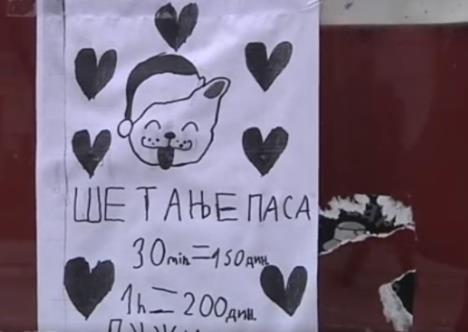 ШЕТАЊЕ ПАСА
30min=150дин.
1h=200дин.